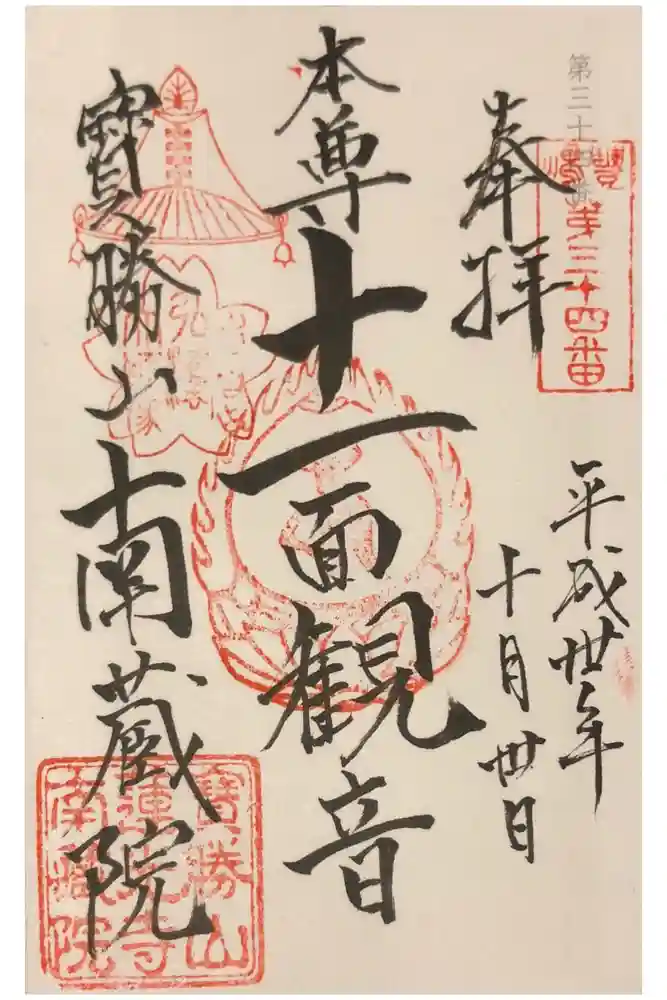 第三十四番
第三十四番
奉拝
平成丗年
十月丗日
本尊十一面観音
寶勝山南蔵院
寶勝山
蓮光寺
南藏院